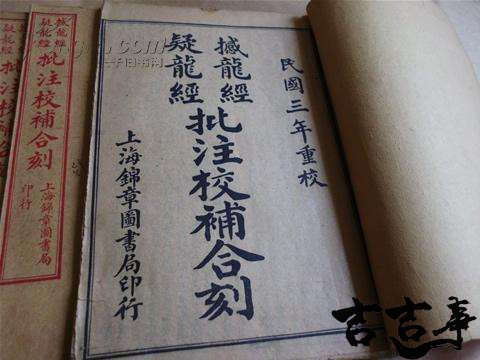 民國三年重校
撼龍經
疑龍經
批注校補合刻
上海錦章圖書局印行
撼龍經
疑龍經
批注校補合刻
上海錦章圖書局
印行
吉吉事